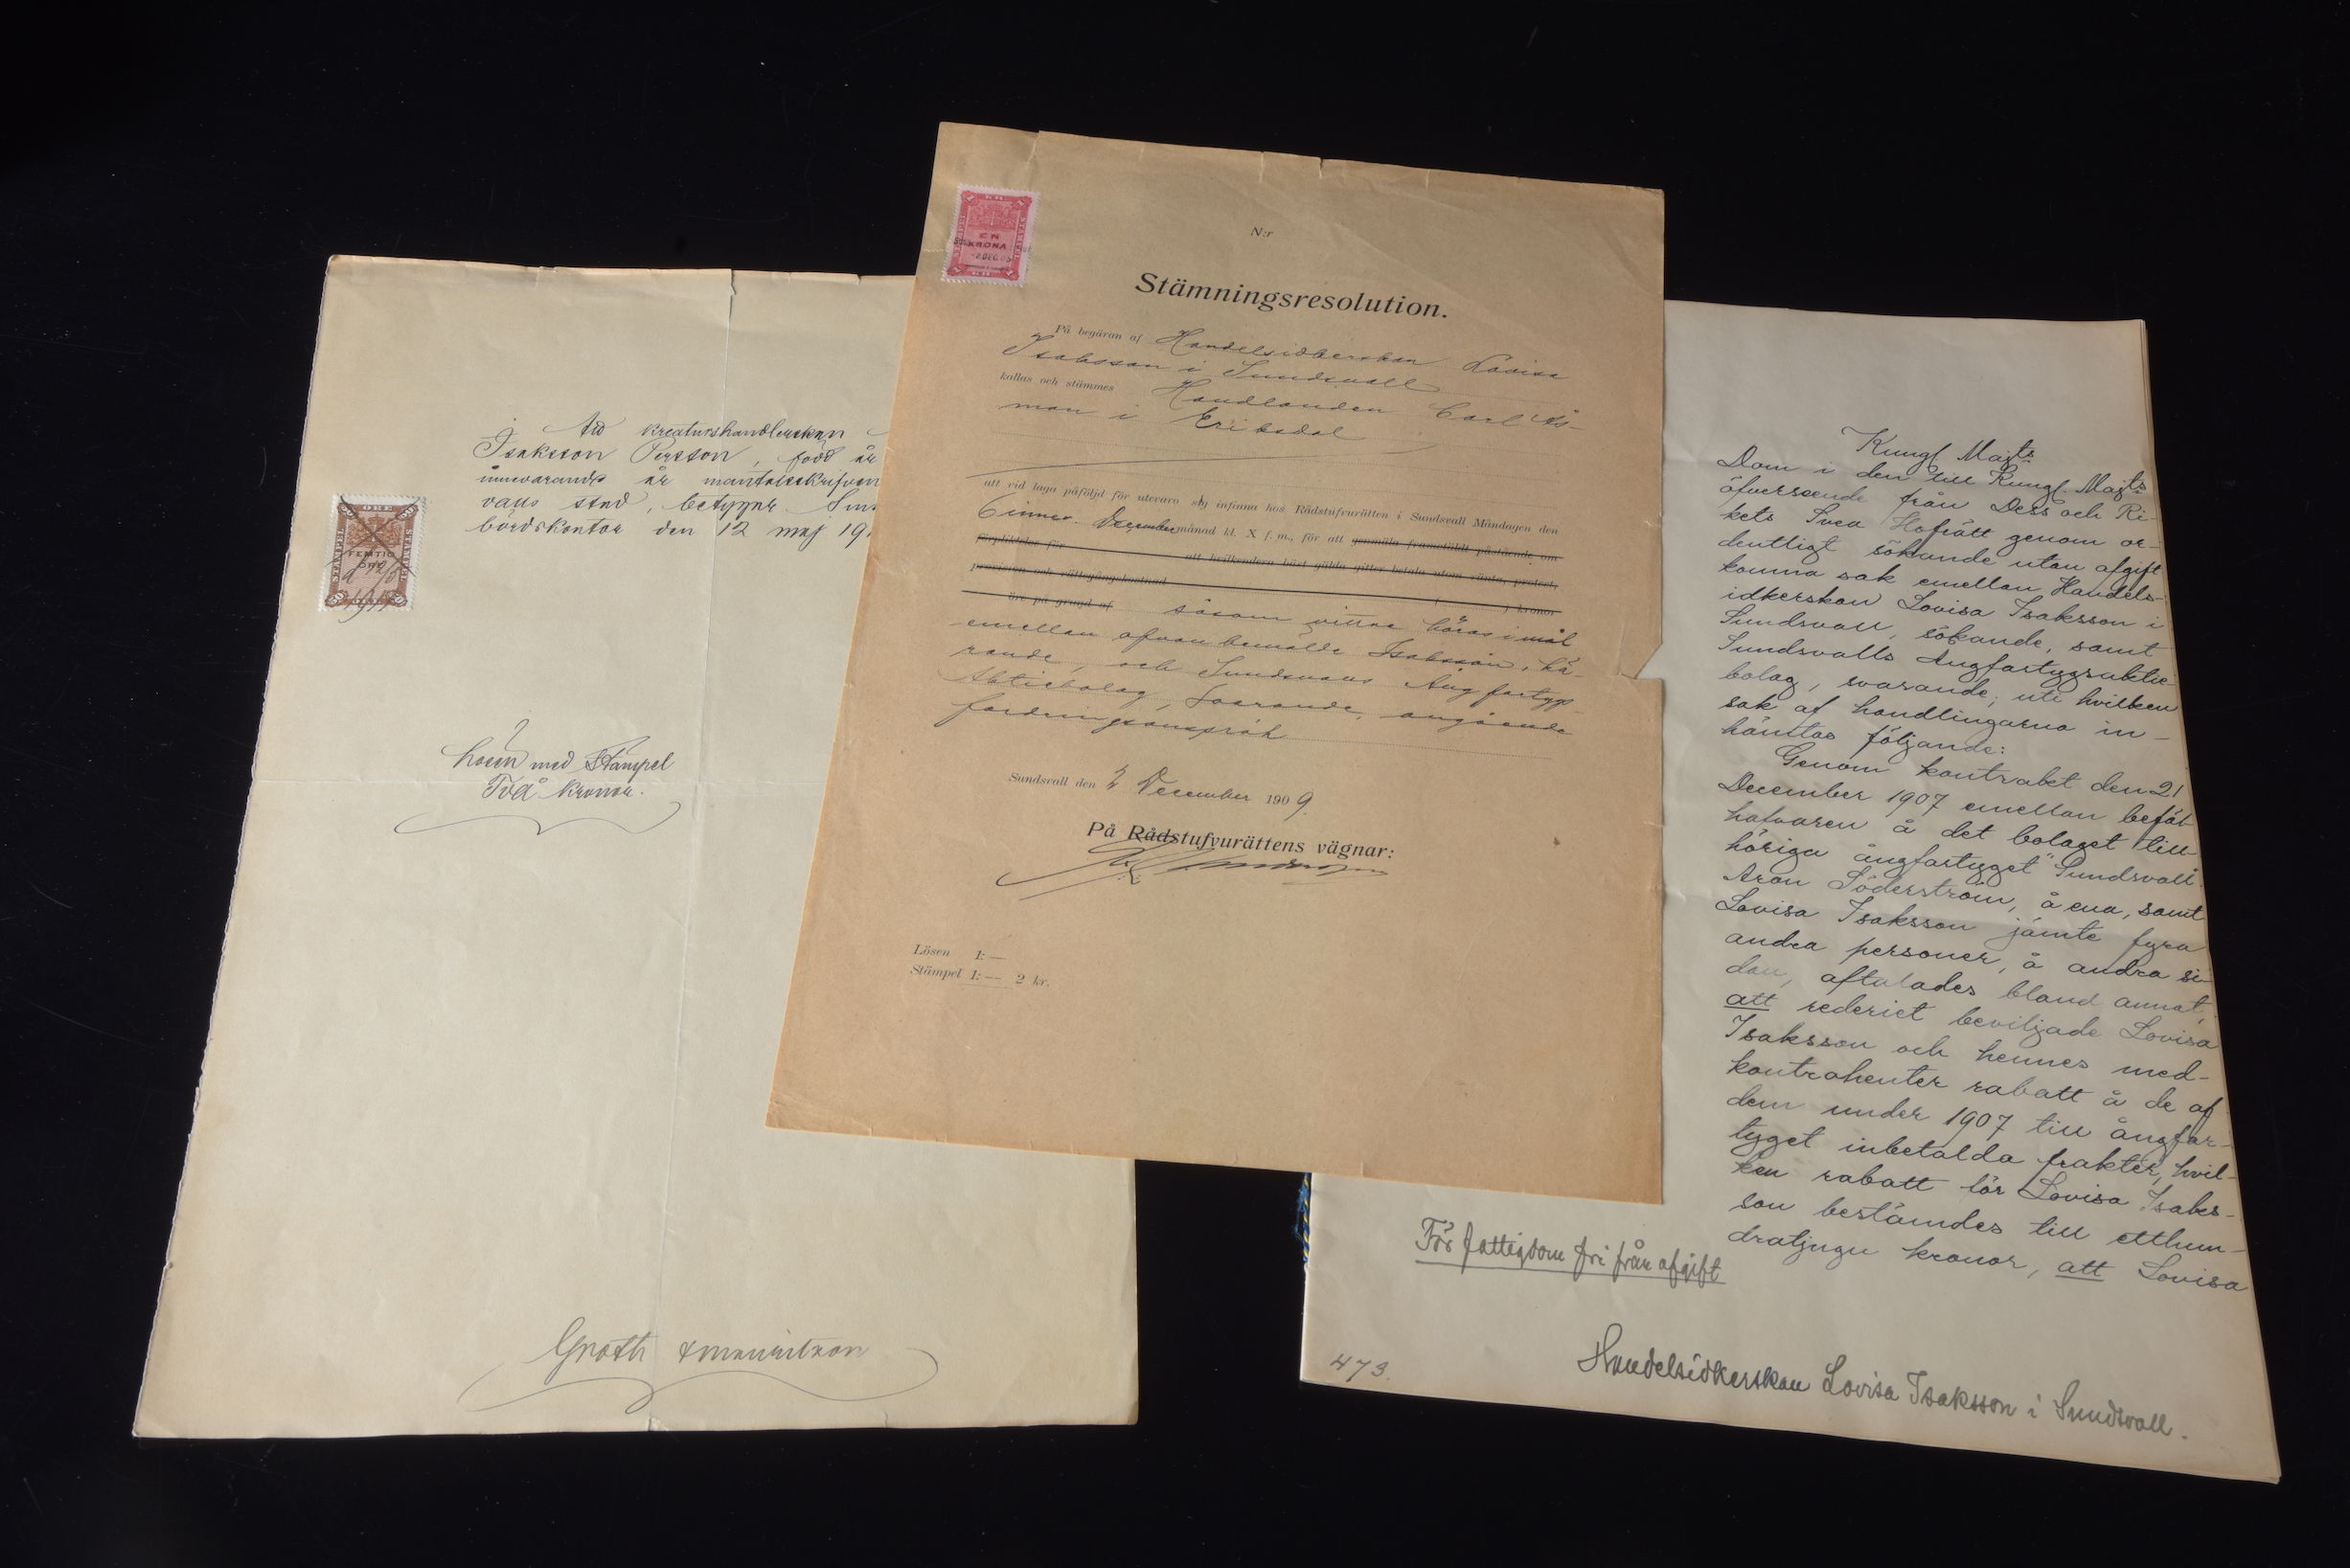 Att kreaturshandlerskan
Isaksson Persson, född år
innevarande år mantalsskrifven
valls stad, betygar Sun
bördskontor den 12 maj 19
FEMTIO
ÖRE
12/5
Lösen med Stämpel
Två kronor.
473.
N:r
EN
KRONA
Stämningsresolution.
På begäran af Handelsidkerskan Lovisa
Isaksson i Sundsvall
kallas och stämmes Handlanden Carl Ås-
man i Eriksdal
att vid laga påföljd för utevaro sig infinna hos Rådstufvurätten i Sundsvall Måndagen den
6 innev. December månad kl. X f. m., för att genmäla framstäldt påstående om
förpliktelse för att till käranden bör gälda gitter betala utom ränta, protest,
provision och rättegångskostnad kronor
öre på grund af såsom vittne höras i mål
emellan ofvanbemälde Isaksson, kä-
rande, och Sundsvalls Ångfartygs
Aktiebolag, svarande, angående
fordringsanspråk
Sundsvall den 2 December 1909.
På Rådstufvurättens vägnar:
Lösen 1: —
Stämpel 1: — 2 kr.
Kungl Majts
Dom i den till Kungl. Majts
öfverseende från Dess och Ri-
kets Svea Hofrätt genom or-
dentligt sökande utan afgift
komna sak emellan Handels-
idkerskan Lovisa Isaksson i
Sundsvall, sökande, samt
Sundsvalls Ångfartygsaktie-
bolag, svarande; uti hvilken
sak af handlingarna in-
hämtas följande:
Genom kontrakt den 21
December 1907 emellan befäl-
hafvaren å det bolaget till-
höriga ångfartyget "Sundsvall"
Aron Söderström, å ena, samt
Lovisa Isaksson jämte fyra
andra personer, å andra si-
dan, aftalades bland annat,
att rederiet beviljade Lovisa
Isaksson och hennes med-
kontrahenter rabatt å de af
dem under 1907 till ångfar-
tyget inbetalda frakter, hvil-
ken rabatt för Lovisa Isaks-
son bestämdes till etthun-
dratjugu kronor, att Lovisa
För fattigdom fri från afgift
Handelsidkerskan Lovisa Isaksson i Sundsvall.